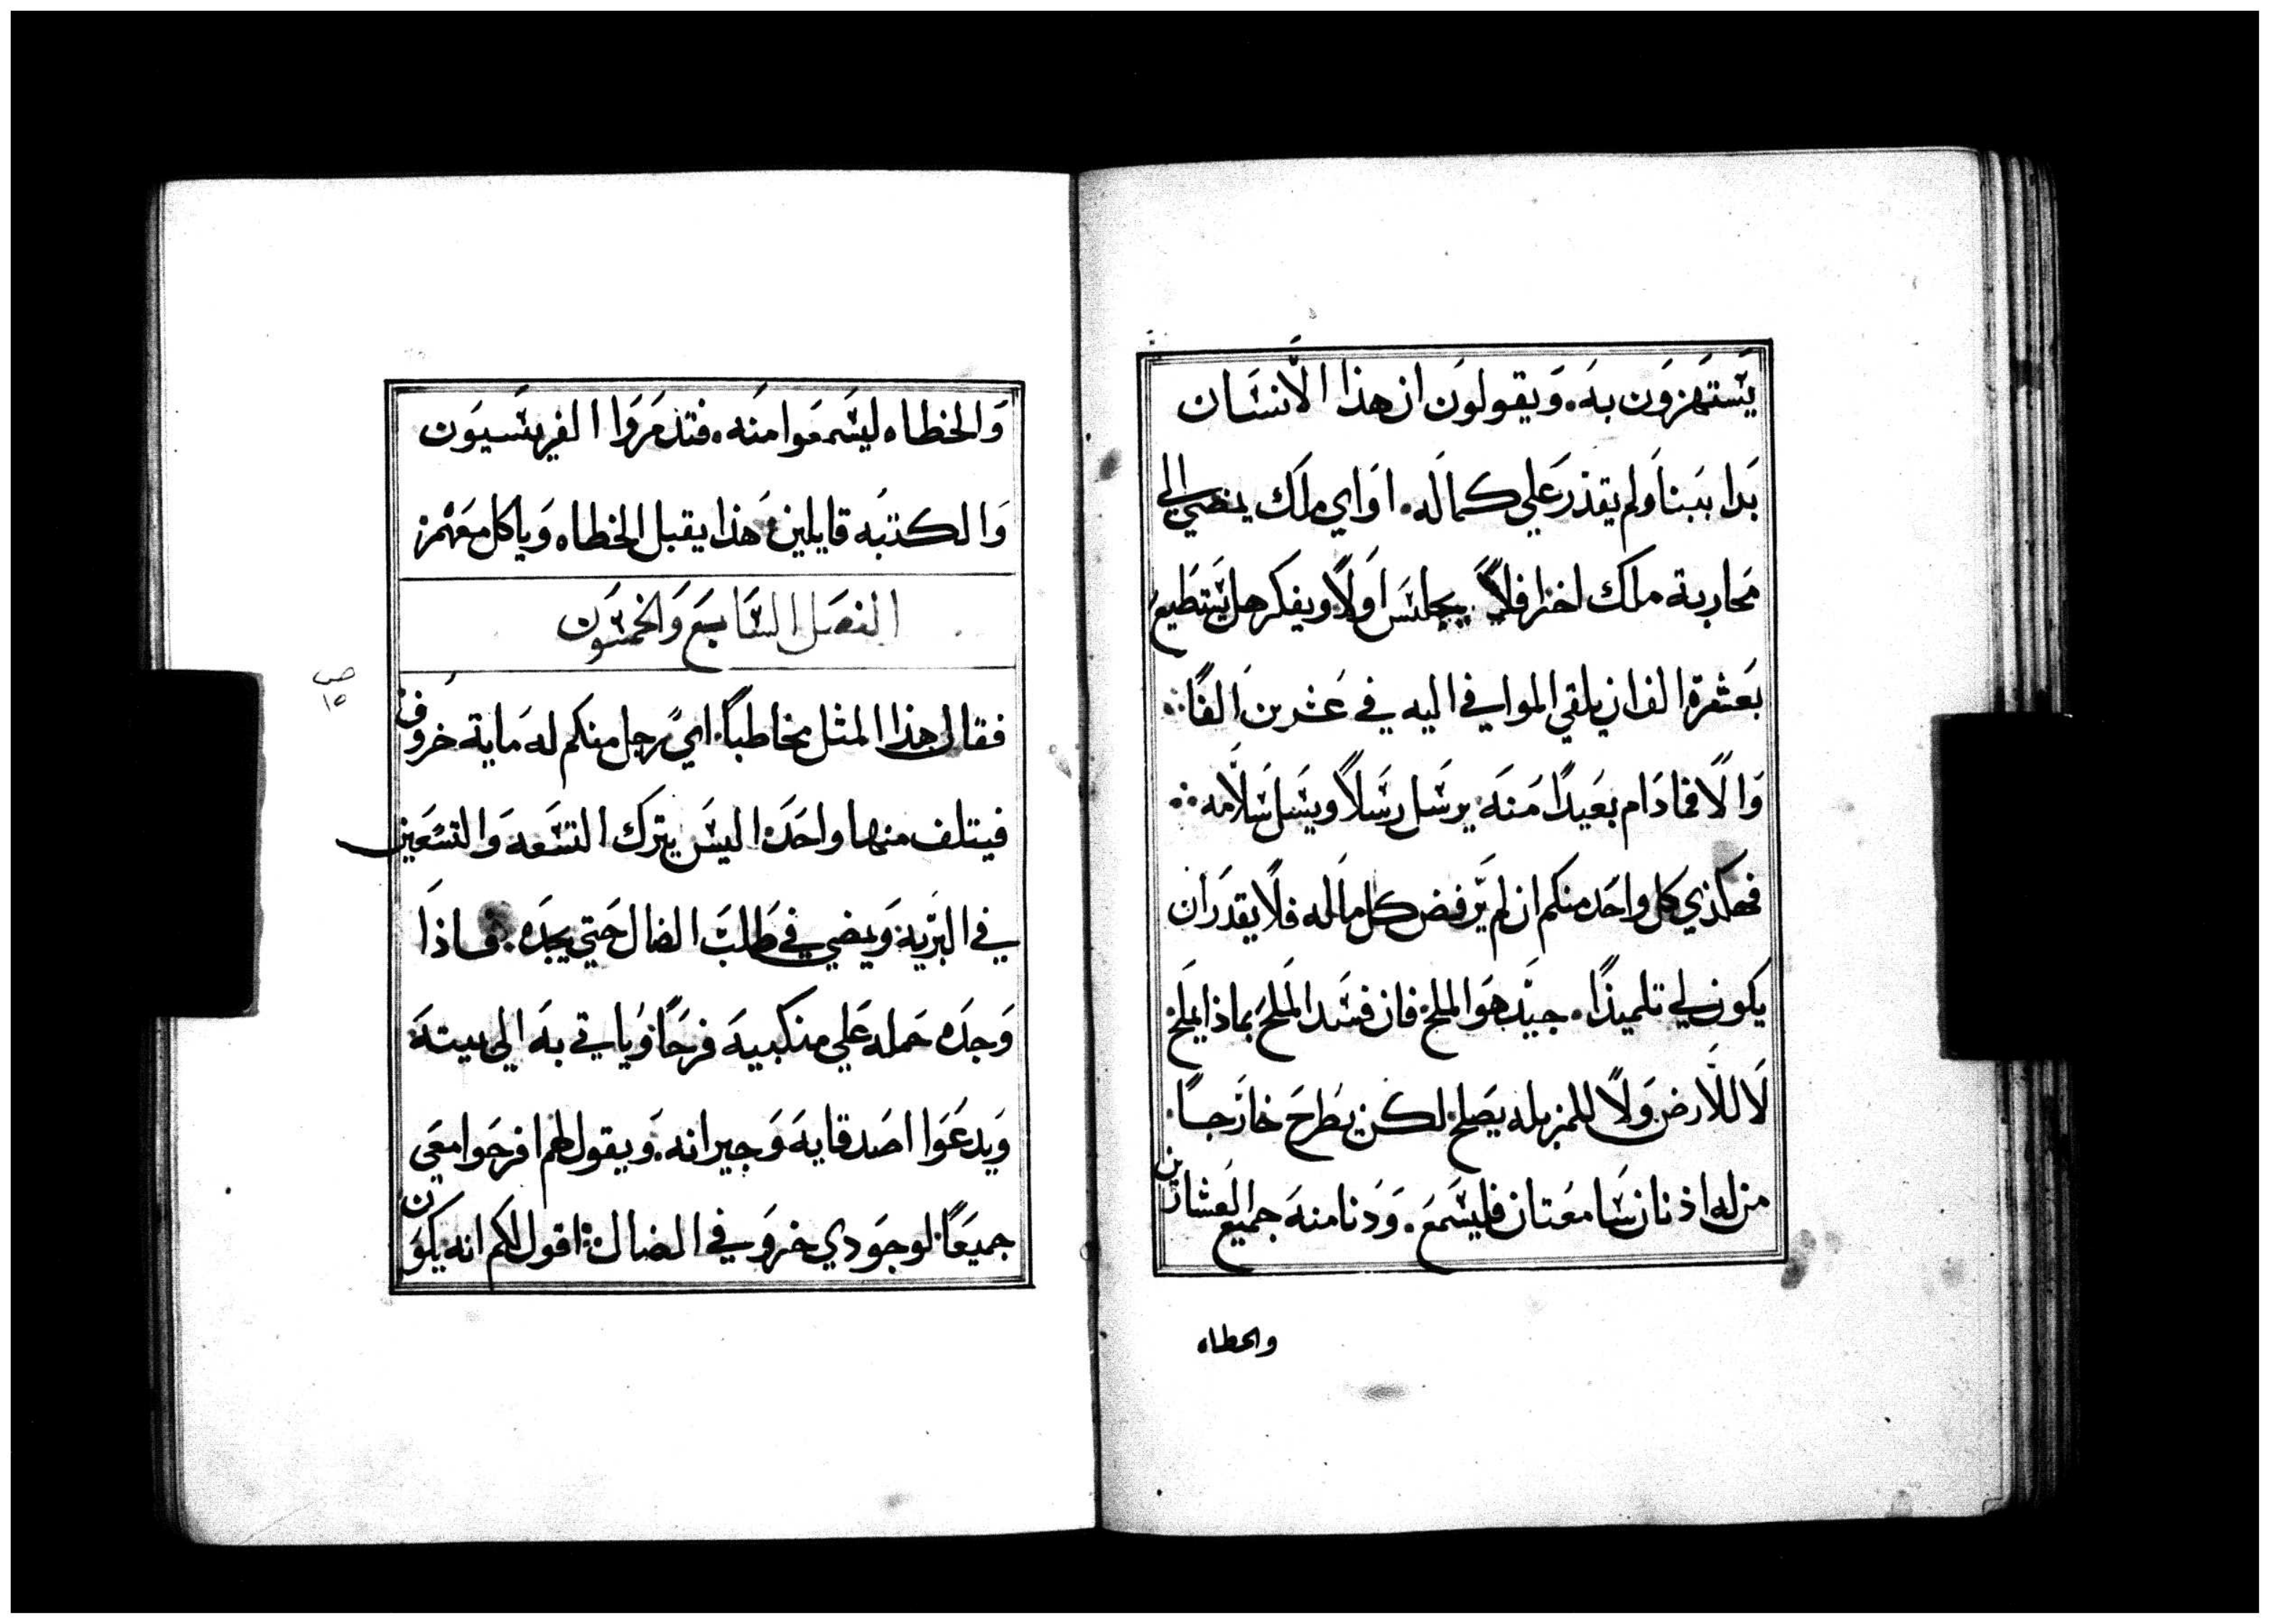 يستهزون به. ويقولون ان هذا الانسان
بدا ببنا ولم يقدر علي كماله. او اي ملك يمضي الي
محاربة ملك اخر افلا يجلس اولا ويفكر هل يستطيع
بعشرة الف ان يلقي الموافي اليه في عشرين الفا
والا فما دام بعيدا منه يرسل رسلا ويسل سلامه
فهكذي كل واحد منكم ان لم يرفض كل ماله فلا يقدر ان
يكون لي تلميذا. جيد هو الملح فان فسد الملح بماذا يملح
لا للارض ولا للمزبله يصلح لكن يطرح خارجا.
من له اذنان سامعتان فليسمع. ودنا منه جميع العشارين
والحطاه
والخطاه ليسمعوا منه. فتذمروا الفريسيون
والكتبه قايلين هذا يقبل الخطاه وياكل معهم
الفصل السابع والخمسون
فقال هذا المثل مخاطبا. اي رجل منكم له ماية خروف
فيتلف منها واحده اليس يترك التسعه والتسعين
في البريه ويمضي في طلب الضال حتي يجده. فاذا
وجده حمله علي منكبيه فرحا وياتي به الي بيته
ويدعوا اصدقايه وجيرانه. ويقول لهم افرحوا معي
جميعا لوجودي خروفي الضال اقول لكم انه يكون
ص
١٥